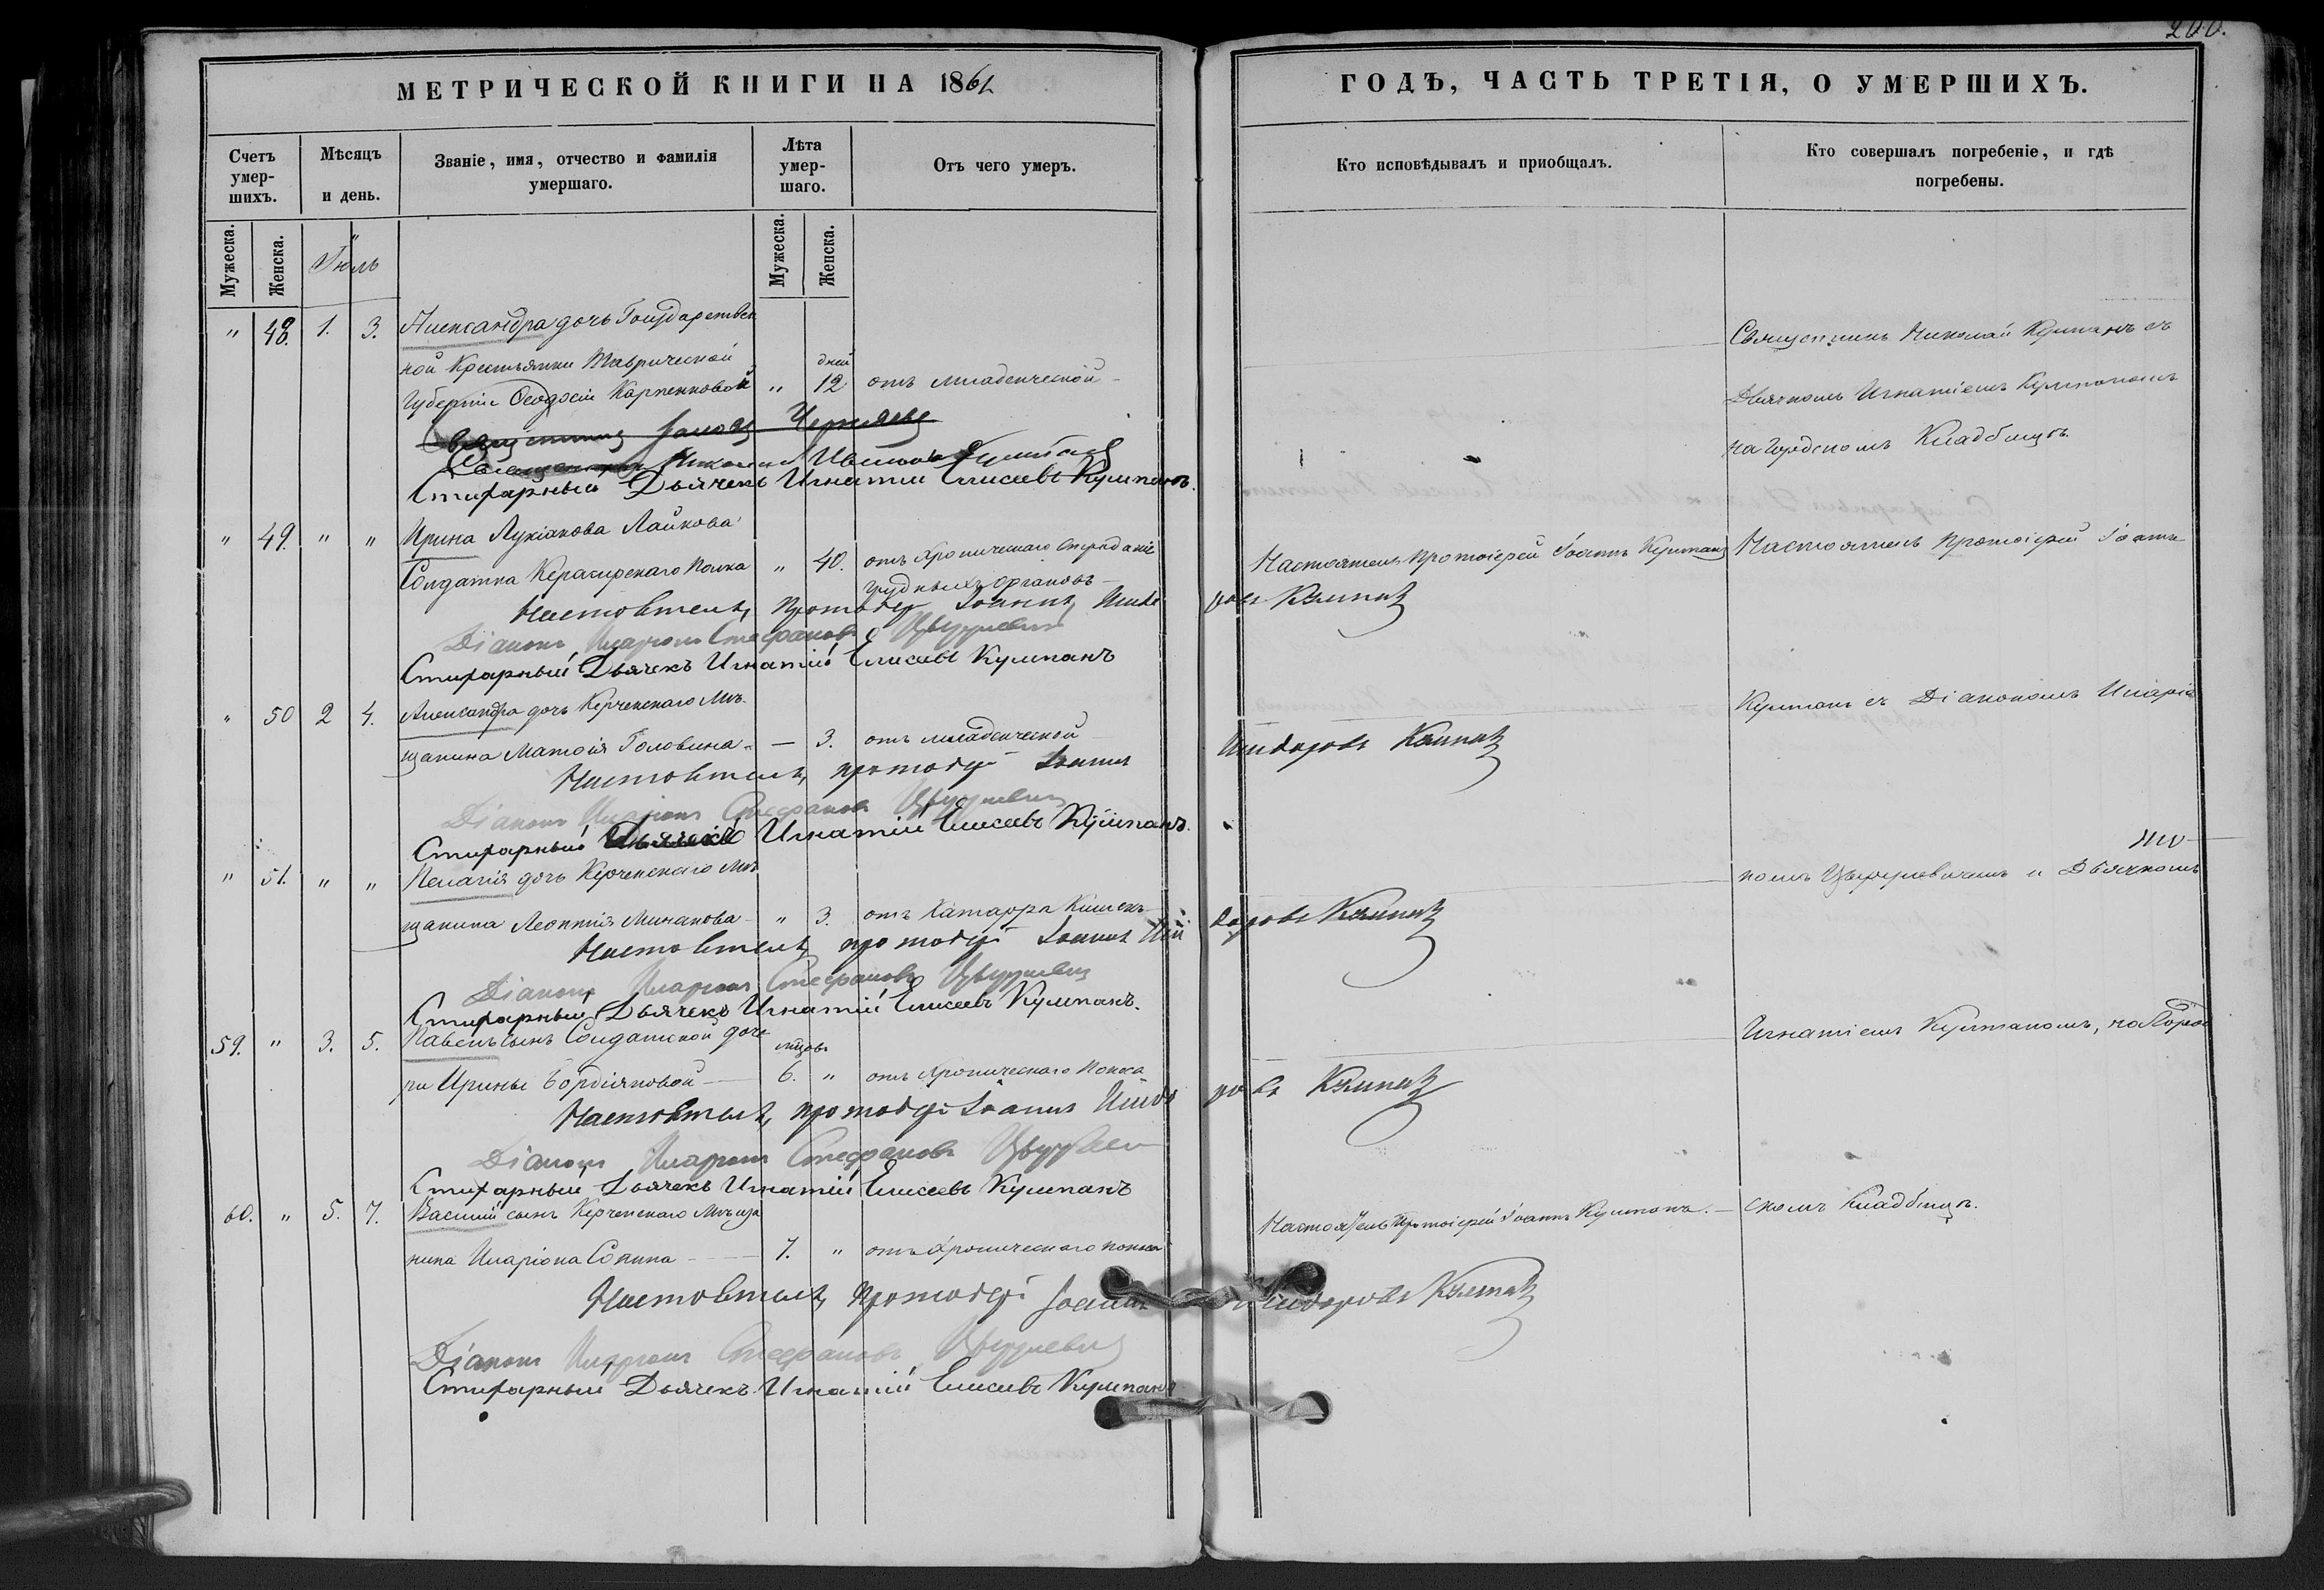 200.
МЕТРИЧЕСКОЙ КНИГИ НА 1861
ГОДЪ, ЧАСТЬ ТРЕТІЯ, О УМЕРШИХЪ.
Счетъ умер-шихъ.
Мѣсяцъ и день.
Званіе, имя, отчество и фамилія умершаго.
Лѣта умер-шаго.
Отъ чего умеръ.
Кто исповѣдывалъ и приобщалъ.
Кто совершалъ погребеніе, и гдѣ погребены.
Мужеска.
Женска.
Іюль
Мужеска.
Женска.
" 48. 1. 3. Александра дочь Государствен
ной Крестьянки Таврической
дней
Губерніи Ѳеодосіи Карпенковой " 12. отъ младенческой
Священникъ Николай Кушманъ съ
Дьячкомъ Игнатіемъ Кумпаномъ
на Городскомъ Кладбищѣ.
Стихарный Дьячекъ Игнатій Елисеевъ Кумпанъ.
" 49. " " Ирина Лукіанова Лайкова
Солдатка Керасирскаго Полка " 40. отъ хроническаго страданія
грудныхъ органовъ
Настоятель Протоіерей Іоаннъ
Настоятель Протоіерей Іоаннъ
Настоятель, протоіер Іоаннъ
Діаконъ Иларіонъ Стефановъ
Стихарный Дьячекъ Игнатій Елисеевъ Кумпанъ
" 50 2 4. Александра дочь Керченскаго Мѣ-
щанина Матѳія Головина — 3. отъ младенческой
съ Діакономъ Иларіо
Настоятель, протоіер Іоаннъ Исидоровъ
Діаконъ Иларіонъ Стефановъ
Стихарный Дьячекъ Игнатій Елисеевъ Кумпанъ.
" 51. " " Пелагія дочь Керченскаго Мѣ
щанина Леонтія Минакова " 3. отъ Катарра Кишекъ
номъ и Дьячкомъ
Настоятель, протоіер Іоаннъ Исидоровъ
Діаконъ Иларіонъ Стефановъ
Стихарный Дьячекъ Игнатій Елисеевъ Кумпанъ.
59. " 3. 5. Павелъ сынъ Солдатской доче
мѣсяцовъ
ри Ирины Бордіяновой 6. " отъ хроническаго Поноса
Игнатіемъ Кумпаномъ, на Город
Настоятель, протоіер Іоаннъ Исидоровъ
Діаконъ Иларіонъ Стефановъ
Стихарный Дьячекъ Игнатій Елисеевъ Кумпанъ
60. " 5. 7. Василій сынъ Керченскаго Мѣща
нина Иларіона Сопина 7. " отъ хроническаго поноса
Настоятель Протоіерей Іоаннъ
скомъ Кладбищѣ.
Настоятель, протоіер Іоаннъ Исидоровъ
Діаконъ Иларіонъ Стефановъ
Стихарный Дьячекъ Игнатій Елисеевъ Кумпанъ